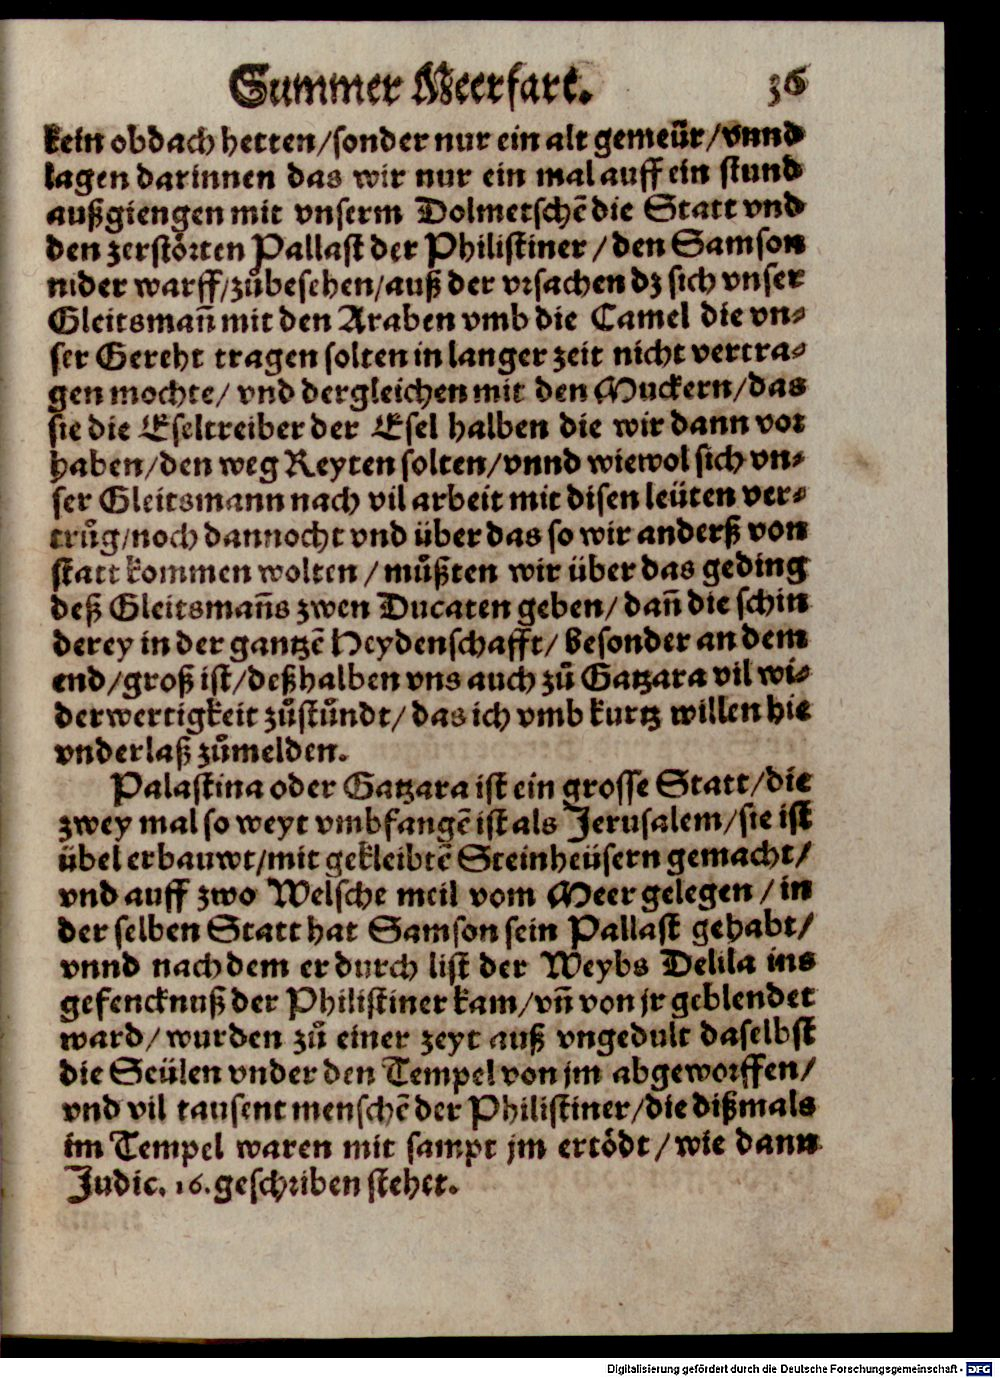 Summer Meerfart. 36
kein obdach hetten/sonder nur ein alt gemeür/vnnd
lagen darinnen das wir nur ein mal auff ein stund
außgiengen mit vnserm Dolmetschē die Statt vnd
den zerstörten Pallast der Philistiner/den Samson
nider warff/zůbesehen/auß der vrsachen dz sich vnser
Gleitsmañ mit den Araben vmb die Camel die vn-
ser Gereht tragen solten in langer zeit nicht vertra-
gen mochte/ vnd dergleichen mit den Muckern/das
sie die Eseltreiber der Esel halben die wir dann vor
haben/den weg Reyten solten/vnnd wiewol sich vn-
ser Gleitsmann nach vil arbeit mit disen leüten ver-
trůg/noch dannocht vnd über das so wir anderß von
statt kommen wolten/můßten wir über das geding
deß Gleitsmañs zwen Ducaten geben/dañ die schin
derey in der gantzē Heydenschafft/besonder an dem
end/groß ist/deßhalben vns auch zů Gatzara vil wi-
derwertigkeit zůstůndt/das ich vmb kurtz willen hie
vnderlaß zůmelden.
Palastina oder Gatzara ist ein grosse Statt/die
zwey mal so weyt vmbfangē ist als Jerusalem/sie ist
übel erbauwt/mit gekleibtē Steinheüsern gemacht/
vnd auff zwo Welsche meil vom Meer gelegen/in
der selben Statt hat Samson sein Pallast gehabt/
vnnd nach dem er durch list der Weybs Delila ins
gefencknuß der Philistiner kam/vñ von jr geblendet
ward/wurden zů einer zeyt auß vngedult daselbst
die Seülen vnder den Tempel von jm abgeworffen/
vnd vil tausent menschē der Philistiner/die dißmals
im Tempel waren mit sampt jm ertödt/wie dann
Judic. 16. geschriben stehet.
Digitalisierung gefördert durch die Deutsche Forschungsgemeinschaft - DFG